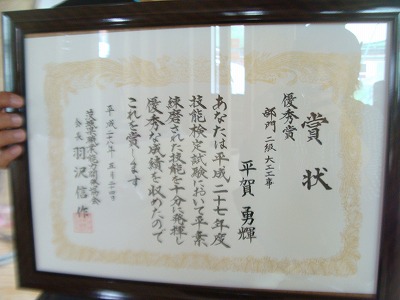 賞状
優秀賞
部門 二級 大工工事
平賀勇輝
あなたは平成二十七年度
技能検定試験において平素
練磨された技能を十分に発揮し
優秀な成績を収めたので
これを賞します
平成二十八年
会長 羽沢信作